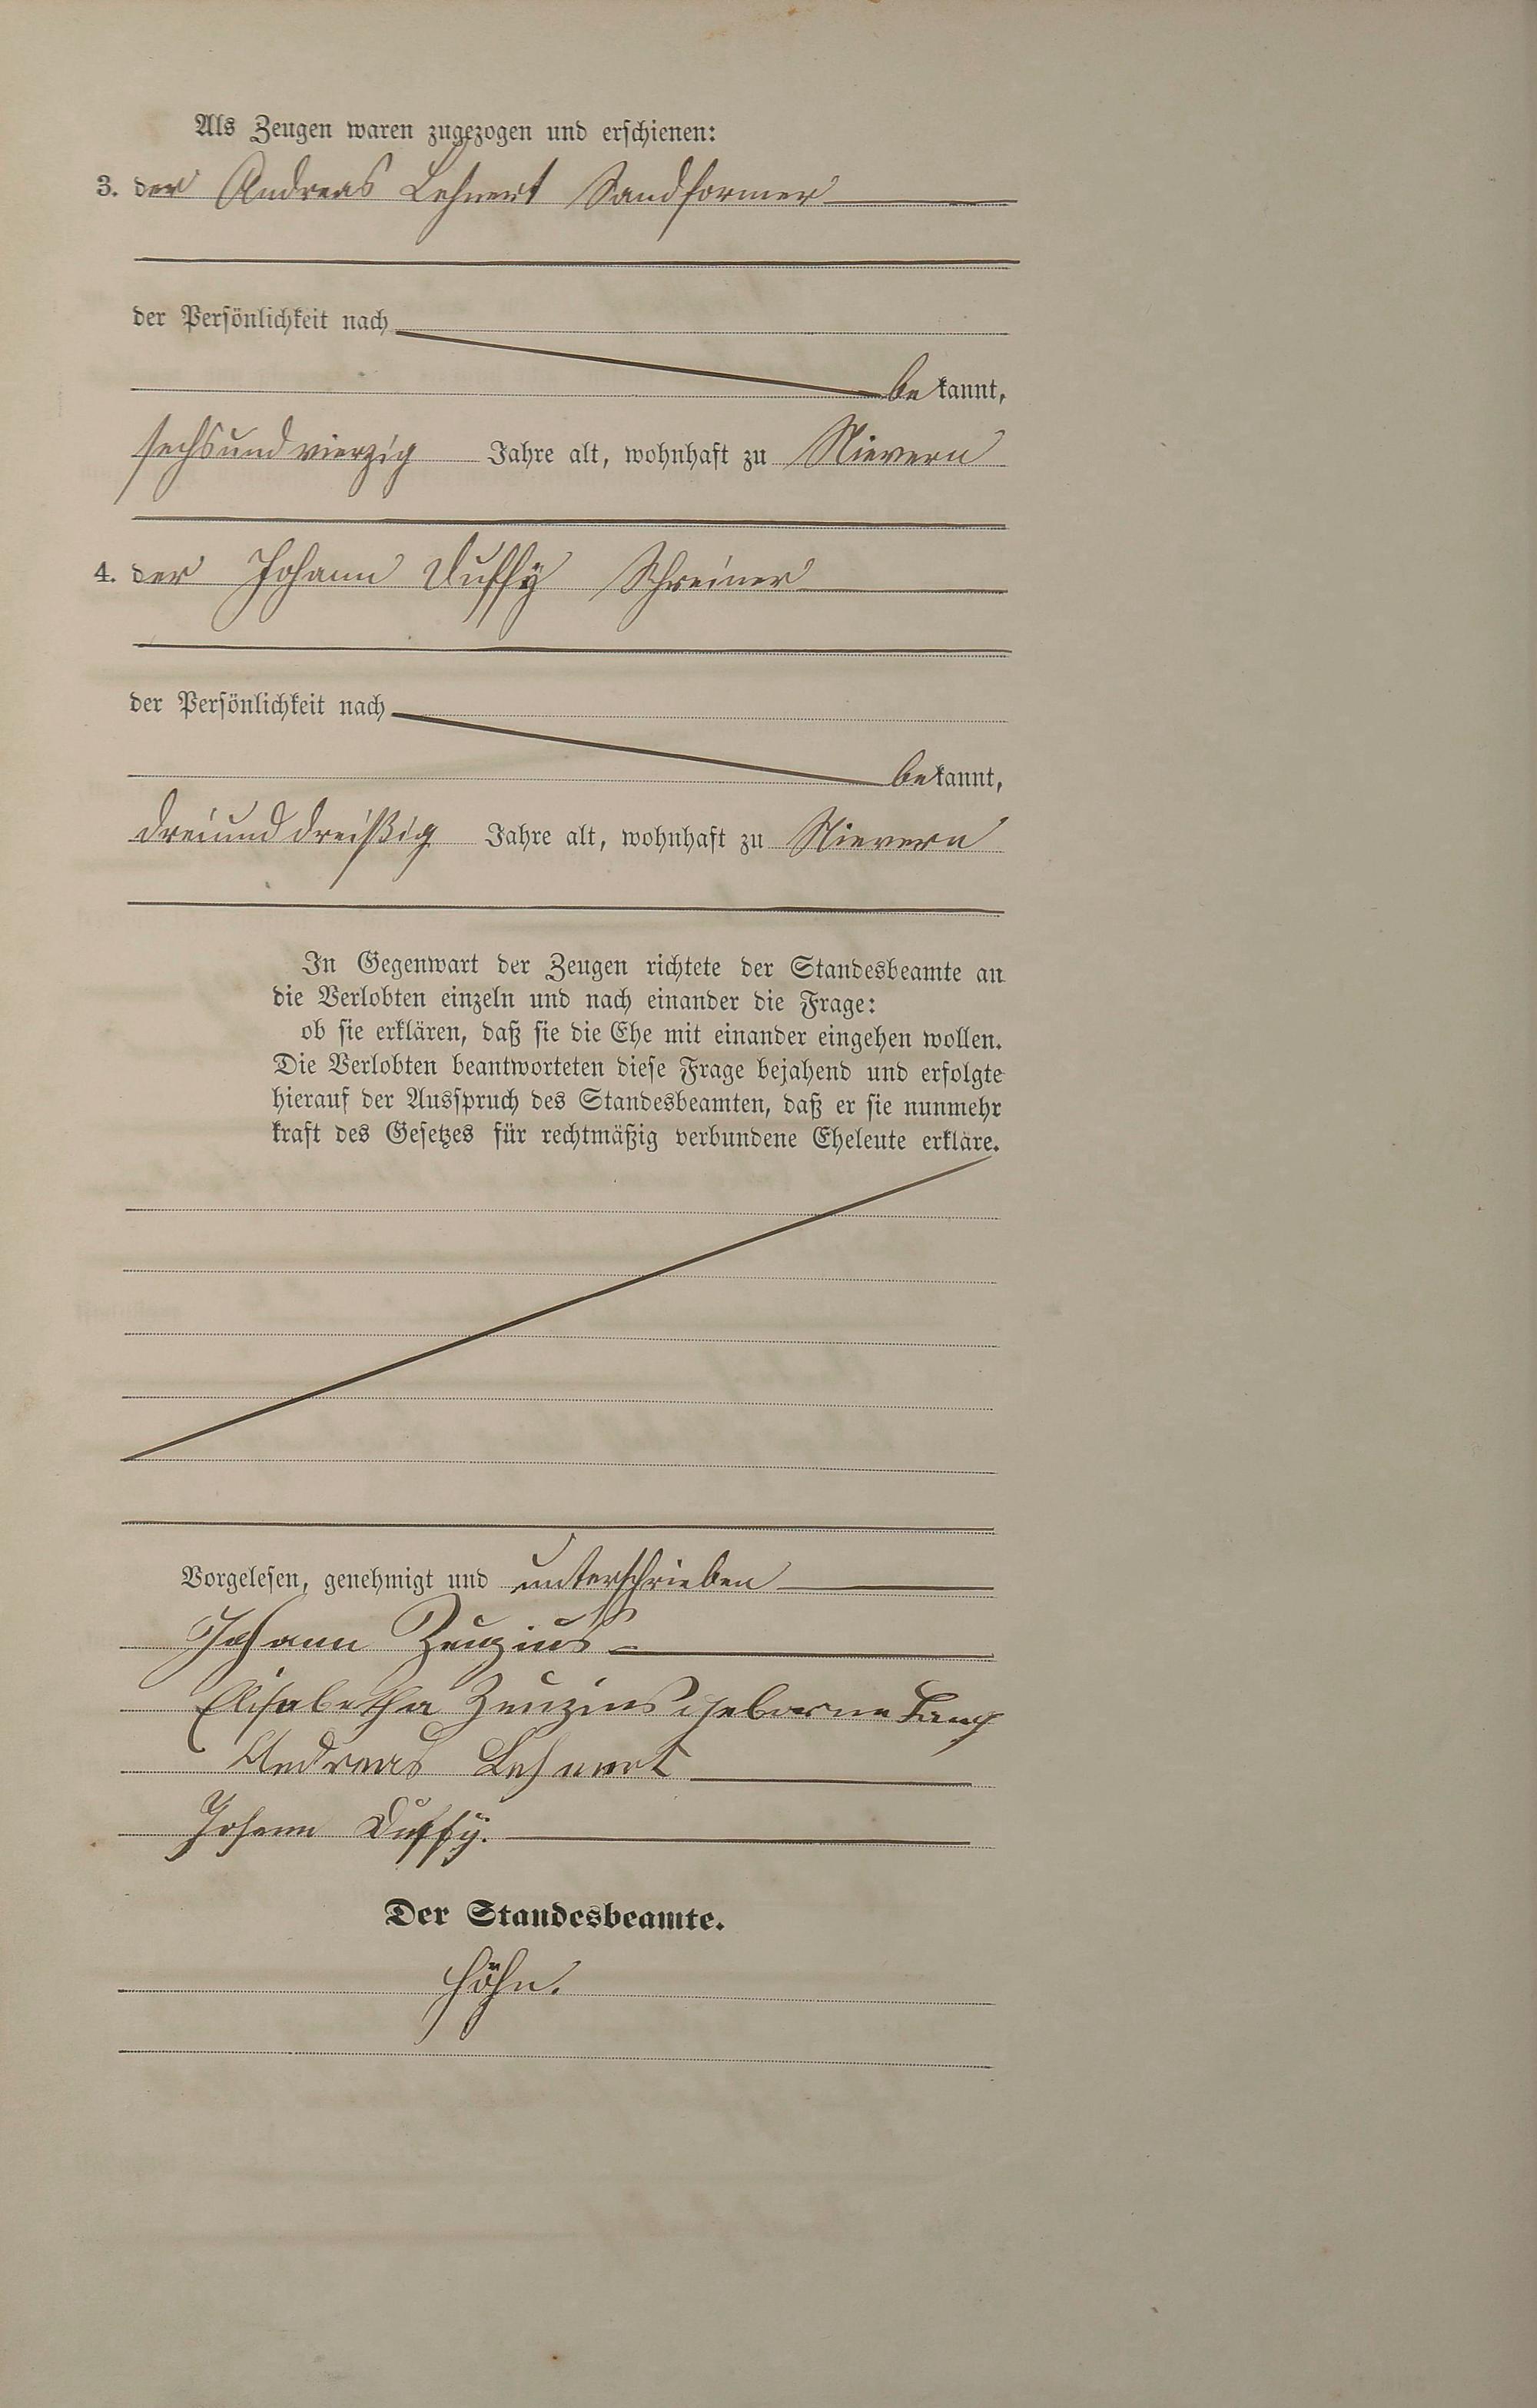 Als Zeugen waren zugezogen und erschienen:
3. der Andreas Lehnert Sandformer
der Persönlichkeit nach
bekannt,
sechsundvierzig Jahre alt, wohnhaft zu Nievern
4. der Johann Duffÿ Schreiner
der Persönlichkeit nach
bekannt,
dreiunddreißig Jahre alt, wohnhaft zu Nievern
In Gegenwart der Zeugen richtete der Standesbeamte an
die Verlobten einzeln und nach einander die Frage:
ob sie erklären, daß sie die Ehe mit einander eingehen wollen.
Die Verlobten beantworteten diese Frage bejahend und erfolgte
hierauf der Ausspruch des Standesbeamten, daß er sie nunmehr
kraft des Gesetzes für rechtmäßig verbundene Eheleute erkläre.
Vorgelesen, genehmigt und unterschrieben
Johann Zenzius
Elisabetha Zenzius geborne Lang
Andreas Lehnert
Johann Duffÿ.
Der Standesbeamte.
Höhn.